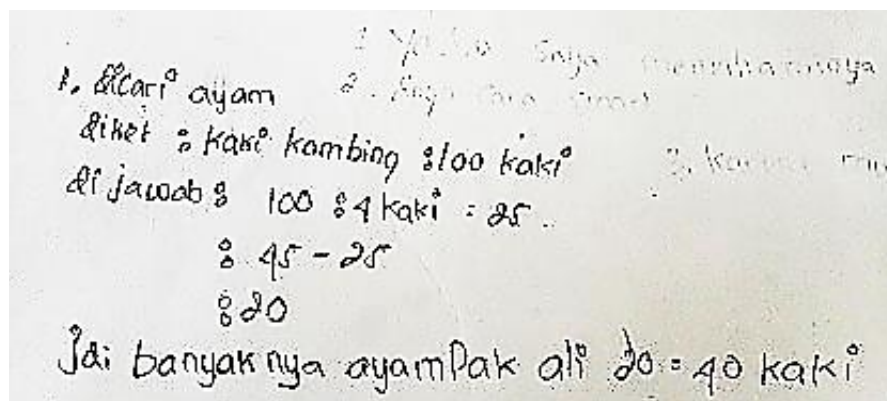 1. dicari ayam
diket : kaki kambing : 100 kaki
di jawab : 100 : 4 kaki = 25.
: 45 - 25
: 20
Jdi banyak nya ayam Pak ali 20 = 40 kaki